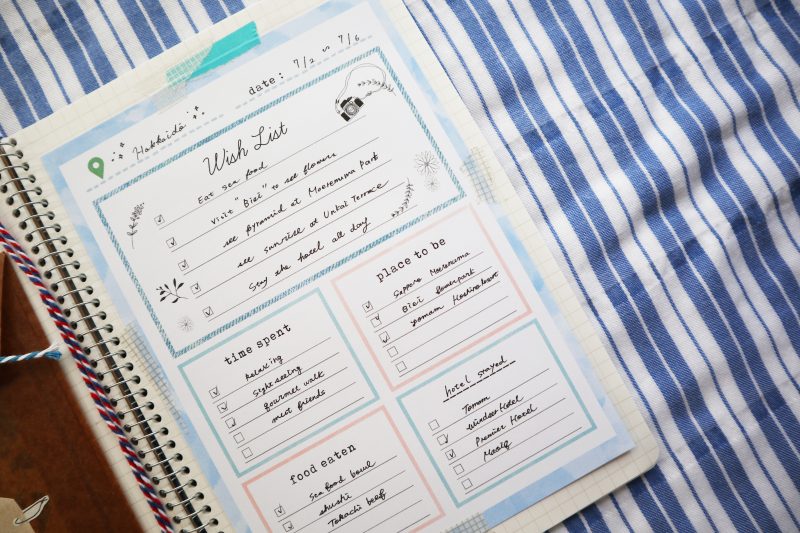 date: 7/2 ~ 7/6
Hokkaido
Wish List
Eat sea food
Visit "Biei" to see flowers
see pyramid at Moerenuma Park
see sunrise at Unkai Terrace
Stay the hotel all day
place to be
Sapporo Moerenuma
Biei flowerpark
Tomam Hoshino Resort
time spent
Relaxing
Sightseeing
gourmet walk
meet friends
hotel stayed
Tomam
Windsor Hotel
Premier Hotel
food eaten
Sea food bowl
shushi
Tokachi beef